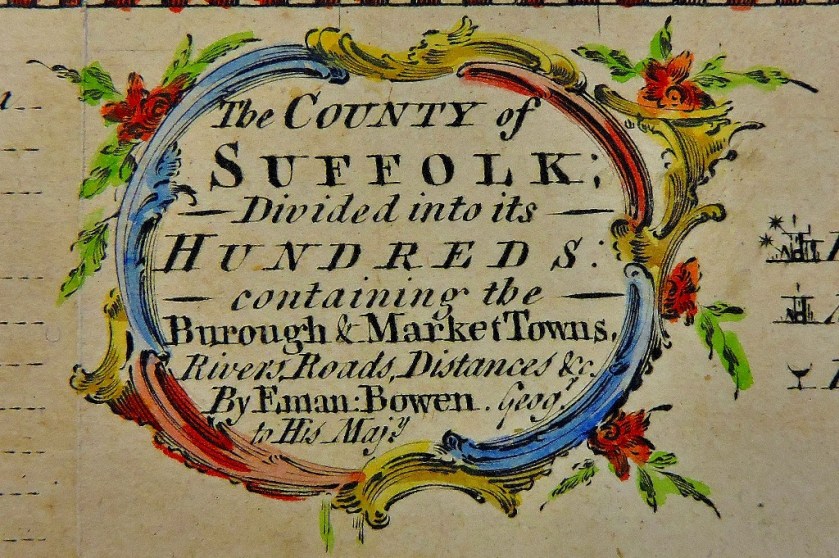 The COUNTY of
SUFFOLK;
Divided into its
HUNDREDS:
containing the
Burough & Market Towns,
Rivers, Roads, Distances &c.
By Eman: Bowen. Geogr.
to His Majy.